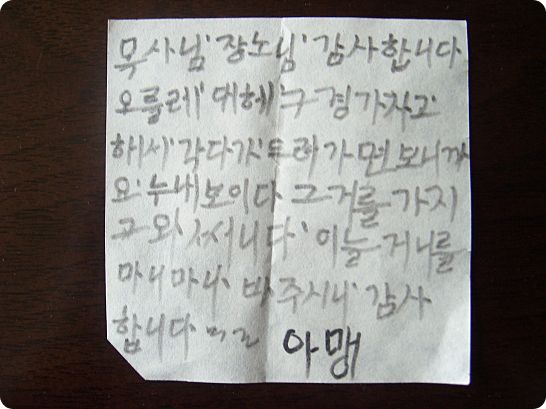 목사님 장노님 감사합니다
오륻레 대헤 구경가자고
하세 각다가 드라가면보니까
오 누네보이다 그거를 가지
고 와써니다 이늘거니를
마니마니 바주시니 감사
합니다
아맹